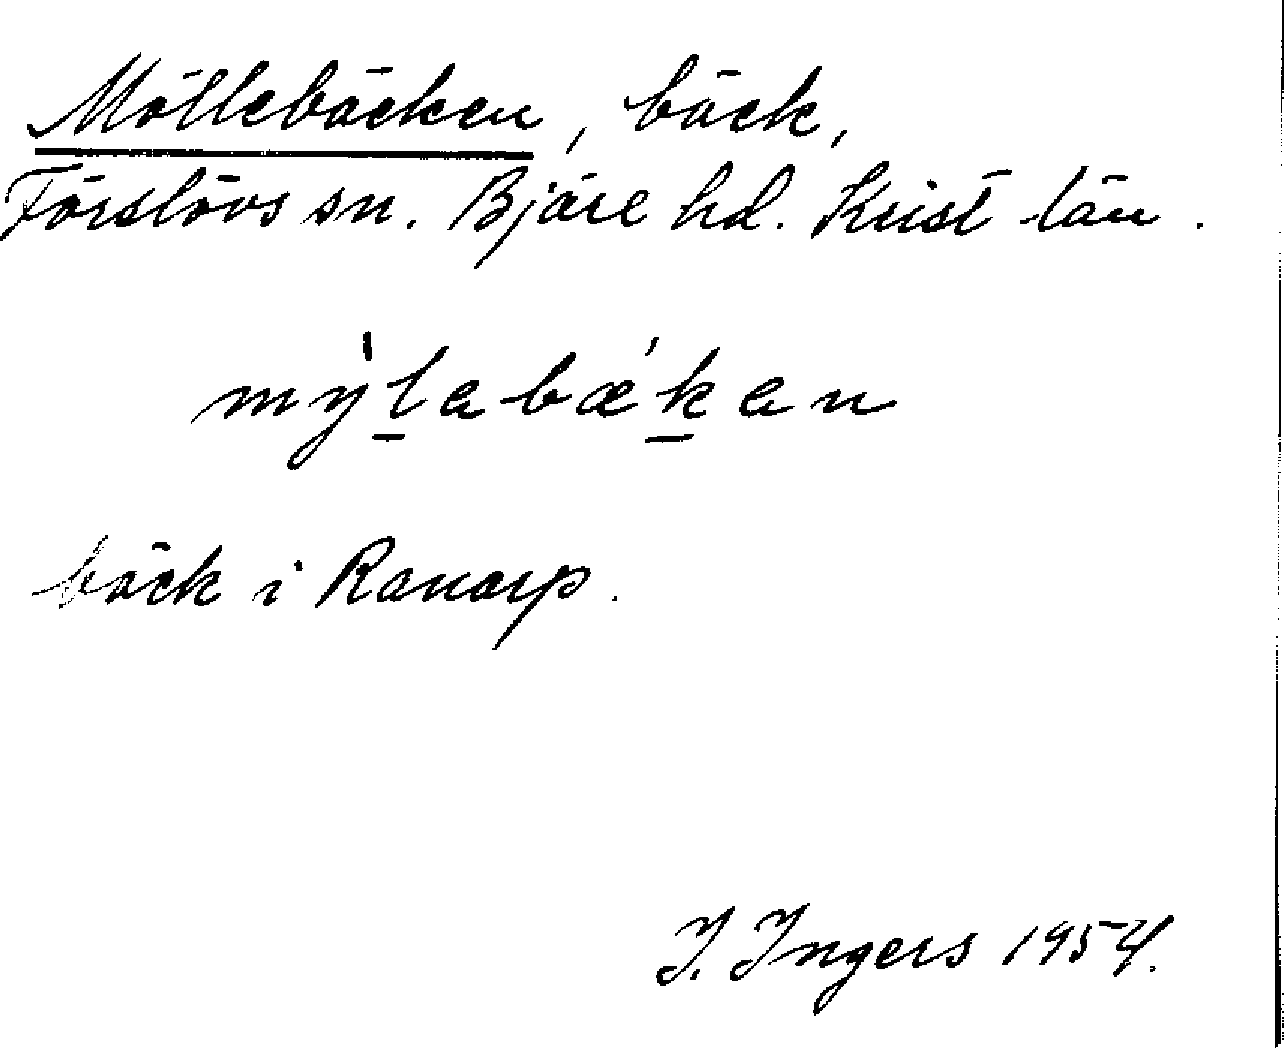 Möllebäcken, bäck,
Förslövs sn. Bjäre hd. Krist län.
mỳl̲abǽk̲an
bäck i Ranarp.
I. Ingers 1954.